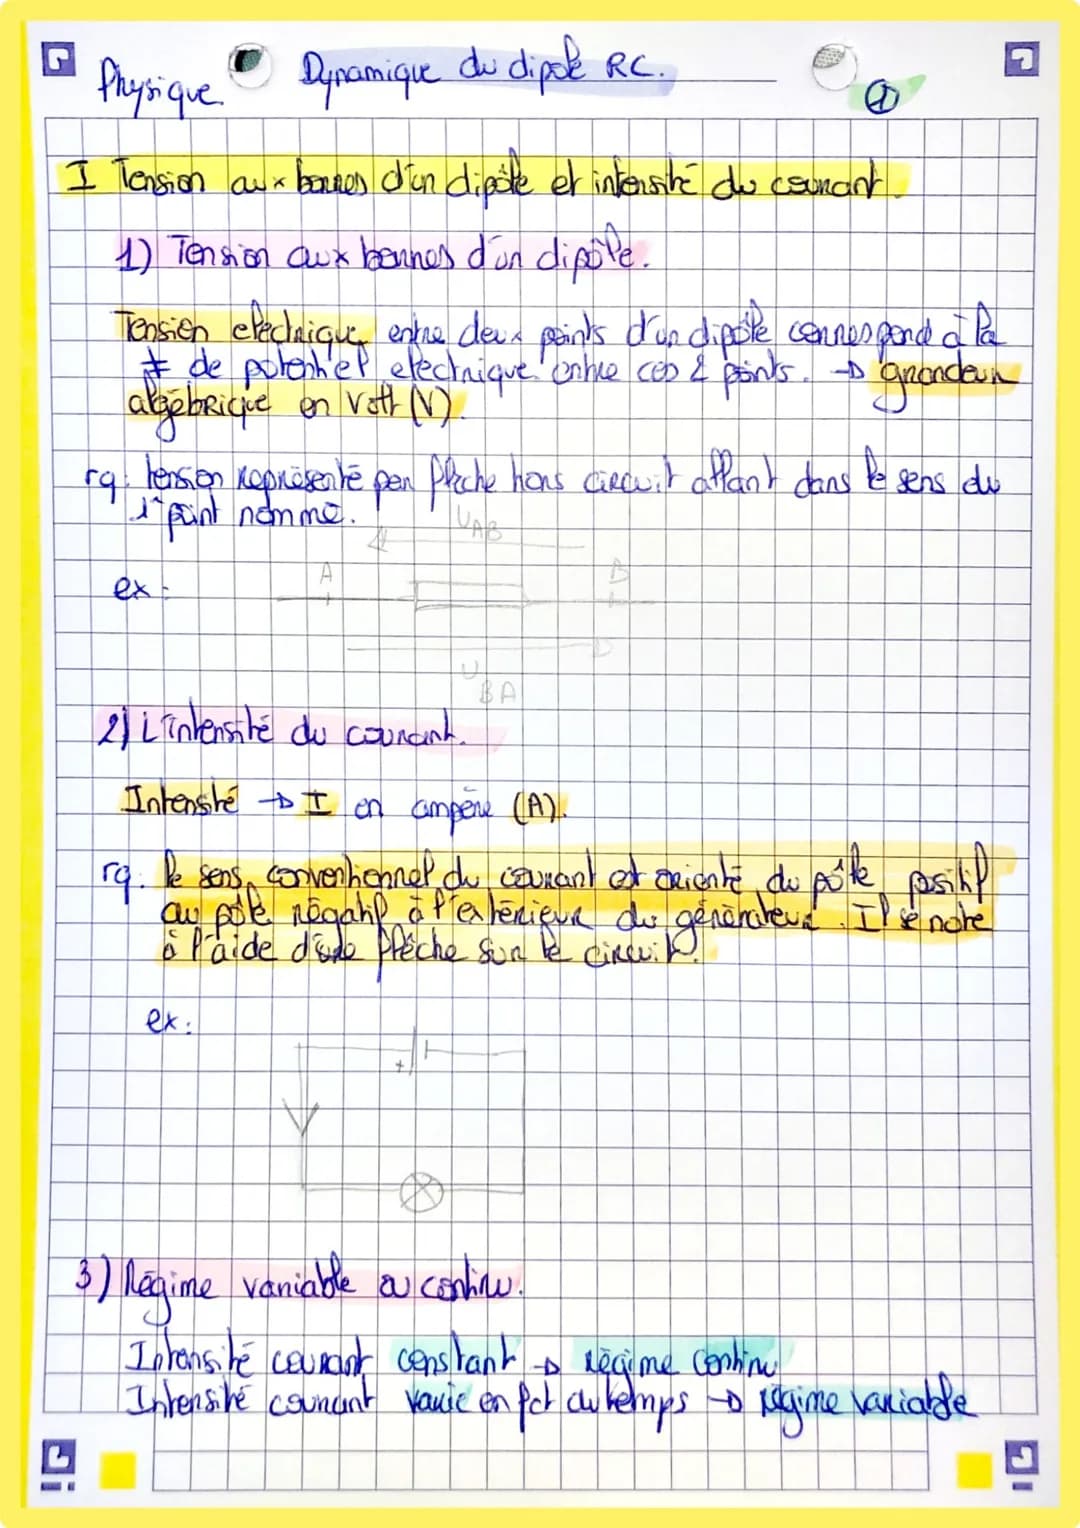 Physique
Dynamique du dipole RC.
1
I Tension aux bornes d'un dipôle et intensité du courant.
1) Tension aux bornes d'un dipôle.
Tension electrique entre deux points d'un dipôle correspond à la
≠ de potentiel electrique entre ces 2 points. → grandeur
algébrique en Volt (V).
rq: tension représenté par flèche hors circuit allant dans le sens du
1er point nommé.
UAB
ex:
A
B
UBA
2) L'intensité du courant.
Intensité → I en ampère (A).
rq: le sens conventionnel du courant est orienté du pôle positif
au pôle négatif à l'extérieur du générateur. Il se note
à l'aide d'une flèche sur le circuit.
ex:
+
3) Régime variable ou continu.
Intensité courant constant → régime continu
Intensité courant varie en fct du temps → régime variable